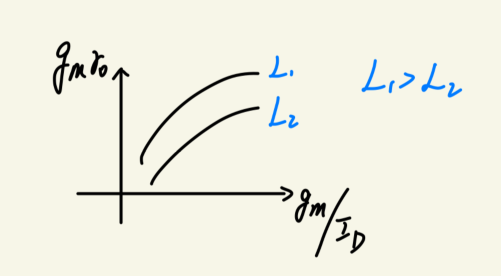 gₘr₀
L₁
L₂
L₁>L₂
gₘ/I_D